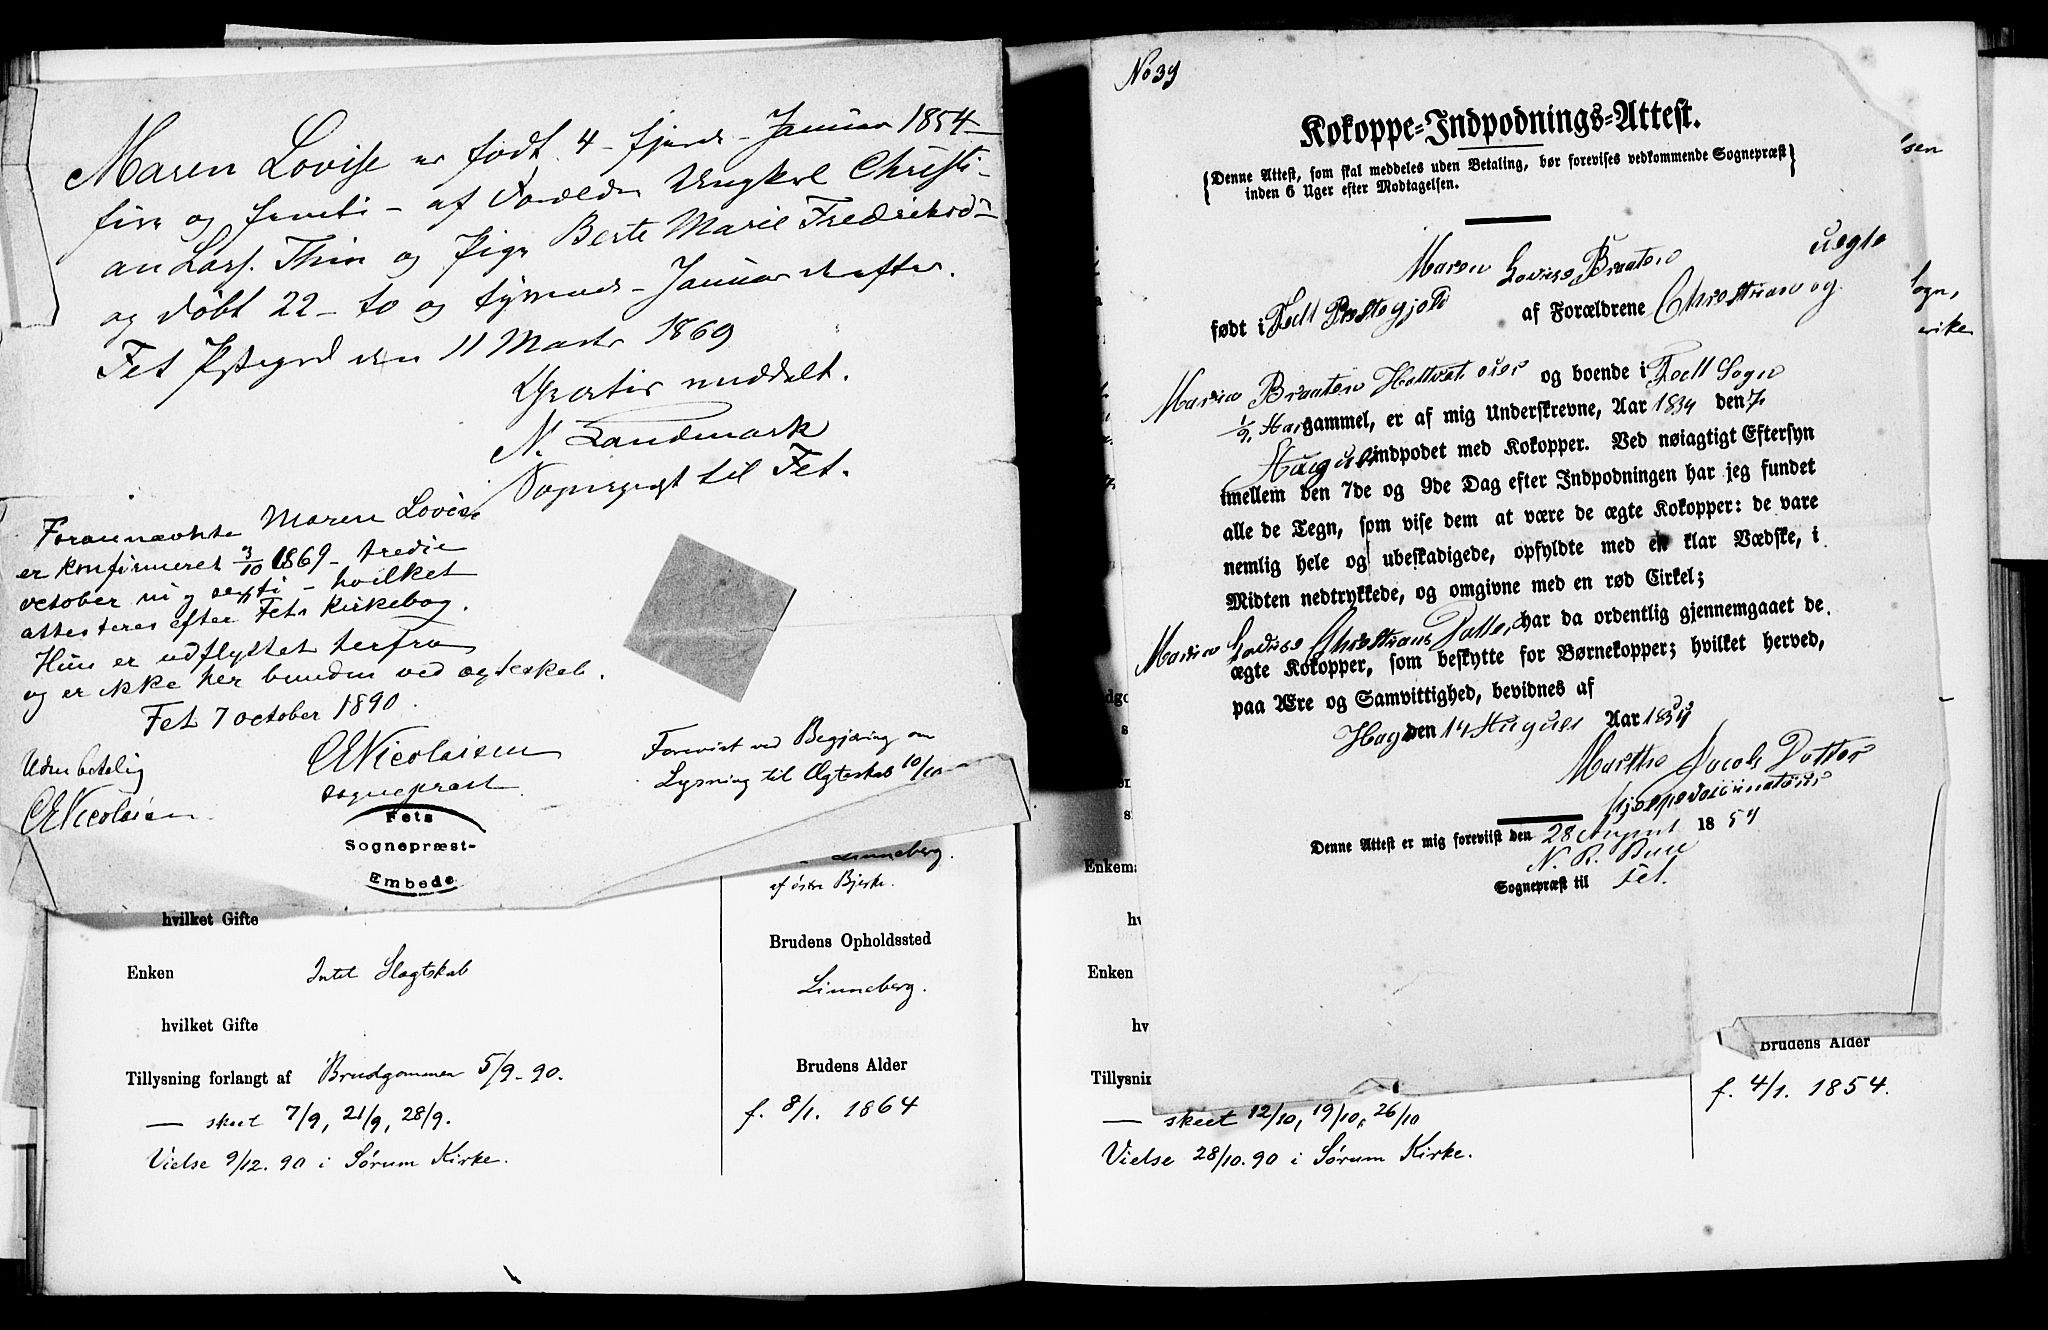 Maren Lovise er født 4 - fjerde - Januar 1854 -
fire og femti - af Forældre Ungkarl Christi-
an Lars. Thin og Pige Berte Marie Fredriksd.
og døbt 22 - to og tyvende - Januar derefter.
Fet Pstegrd den 11 Marts 1869
Gratis meddelt.
N. Landmark
Sognepræst til Fet.
Forannævnte Maren Lovise
er konfirmeret 3/10 1869 - tredie
october ni og sexti - hvilket
attesteres efter Fets kirkebog.
Hun er udflyttet herfra
og er ikke her bunden ved ægteskab.
Fet 7 october 1890.
Uden betaling
CE Nicolaisen
CE Nicolaisen
sognepræst
Forevist ved Begjæring om
Lysning til Ægteskab 10/10
Fets
Sognepræst-
Embede
Linneberg.
af østre Bjerke.
hvilket Gifte
Brudens Opholdssted
Enken Intet Slægtskab
Linneberg.
hvilket Gifte
Brudens Alder
Tillysning forlangt af Brudgommen 5/9-90.
f. 8/1. 1864
— skeet 7/9, 21/9, 28/9.
Vielse 9/12. 90 i Sørum Kirke.
No 39
Kokoppe-Indpodnings-Attest.
{Denne Attest, som skal meddeles uden Betaling, bør forevises vedkommende Sognepræst}
inden 6 Uger efter Modtagelsen.
Maren Lovise Braaten uegte
født i Fedt Prestegjeld af Forældrene Christian og
Maria Braaten og boende i Fedt Sogn
1/2 Aar gammel, er af mig Underskrevne, Aar 1854 den 7
August indpodet med Kokopper. Ved nøiagtigt Eftersyn
imellem den 7de og 9de Dag efter Indpodningen har jeg fundet
alle de Tegn, som vise dem at være de ægte Kokopper: de vare
nemlig hele og ubeskadigede, opfyldte med en klar Vædske, i
Midten nedtrykkede, og omgivne med en rød Cirkel;
Maren Lovise Christians Datter, har da ordentlig gjennemgaaet de
ægte Kokopper, som beskytte for Børnekopper; hvilket herved,
paa Ære og Samvittighed, bevidnes af
Hag den 14 August Aar 1854
Marthe Jacobs Dotter
Denne Attest er mig foreviist den 28 August 1854
N. R. Bull
Sognepræst til Fet.
sen
Sogn,
rike
Enkem
hv
Enken
hv
Brudens Alder
Tillysnin
f. 4/1. 1854.
— skeet 12/10, 19/10, 26/10
Vielse 28/10. 90 i Sørum Kirke.